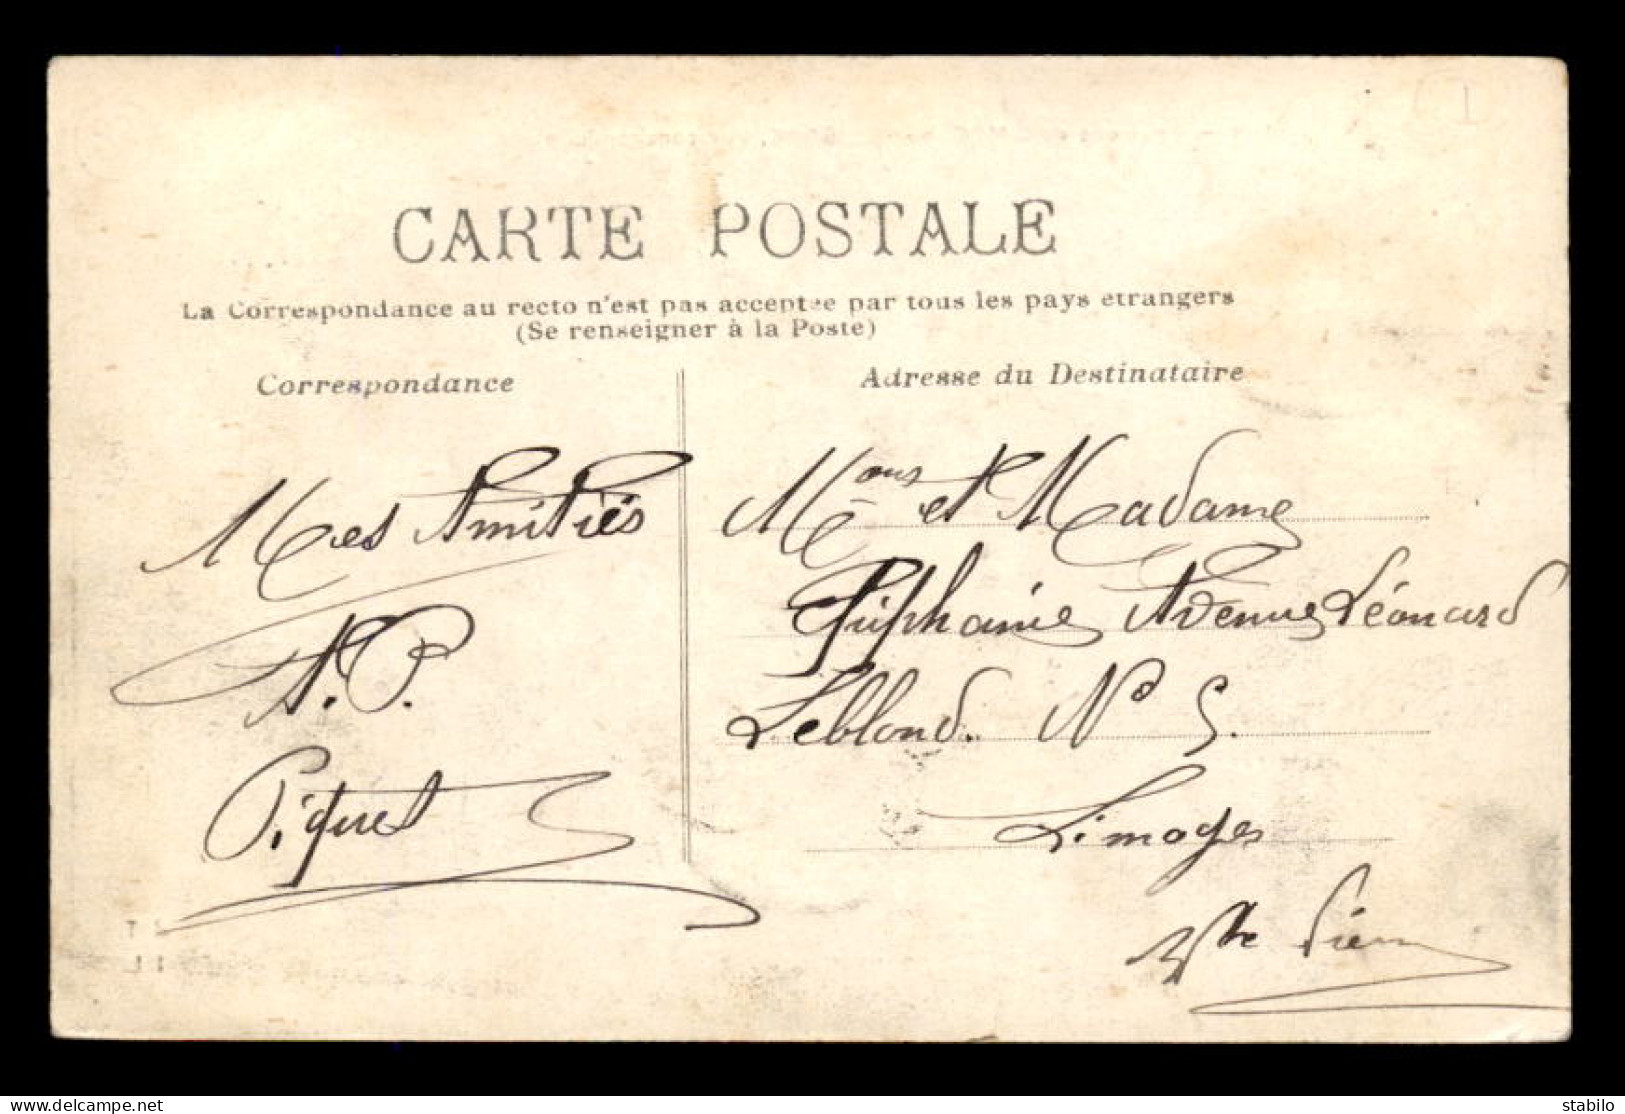 CARTE POSTALE
La Correspondance au recto n'est pas acceptée par tous les pays etrangers
(Se renseigner à la Poste)
Correspondance
Adresse du Destinataire
Mes Amitiés
A.P.
Piquet
Mons et Madame
Epiphanie Avenue Léonard
Leblond. N° 5.
Limoges
Hte Vienne
delcampe.net
stabilo